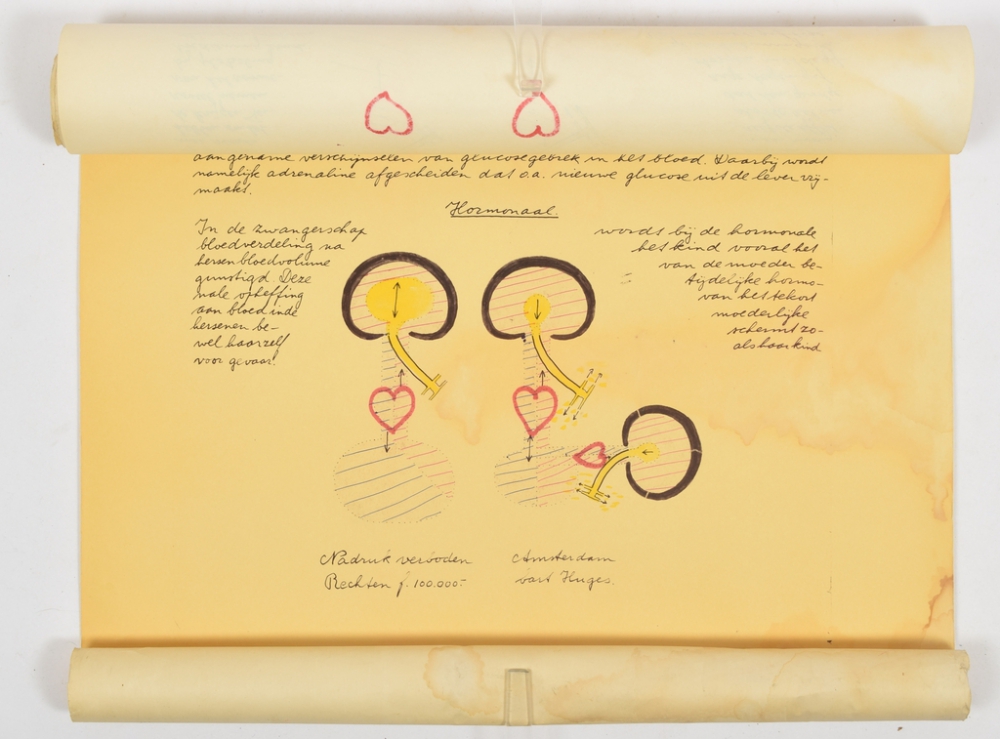 aangename verschijnselen van glucosegebrek in het bloed. Daarbij wordt
namelijk adrenaline afgescheiden dat o.a. nieuwe glucose uit de lever vrij-
maakt.
Hormonaal.
In de zwangerschap wordt bij de hormonale
bloedverdeling na het kind vooral het
hersenbloedvolume van de moeder be-
gunstigd. Deze tijdelijke hormo-
nale opheffing van het tekort
aan bloed in de moederlijke
hersenen be- schermt zo-
wel haarzelf als haar kind
voor gevaar.
Nadruk verboden Amsterdam
Rechten f. 100.000.- bart Huges.